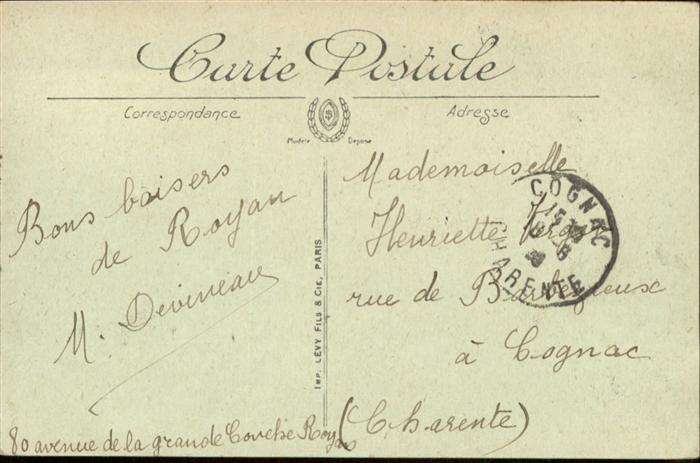 Carte Postale
Correspondance
Adresse
Modèle Déposé
Bons baisers
de Royan
M. Devineau
80 avenue de la grande Conche Royan
IMP. LÉVY FILS & CIE, PARIS
Mademoiselle
Henriette
rue de Barbezieux
à Cognac
(Charente)
COGNAC
CHARENTE